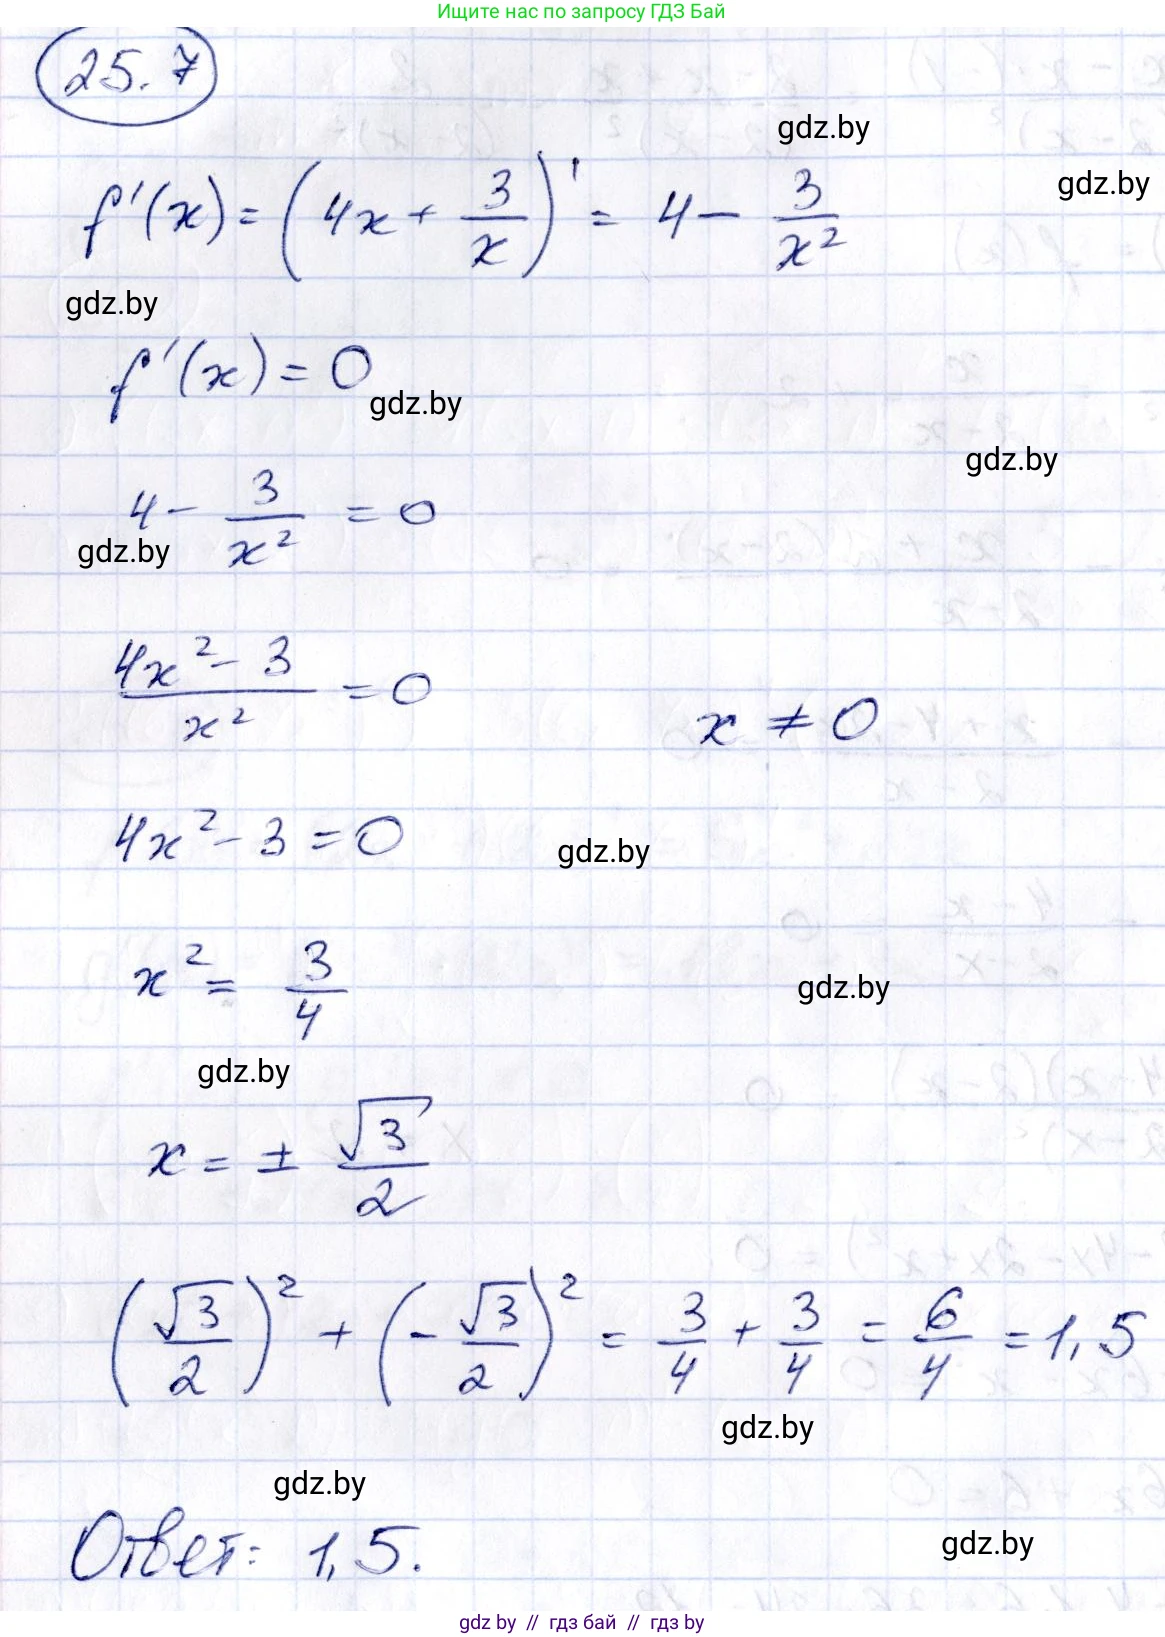 Ищите нас по запросу ГДЗ Бай
25.7
gdz.by
gdz.by
f'(x) = (4x + 3/x)' = 4 - 3/x²
gdz.by
f'(x) = 0
gdz.by
gdz.by
4 - 3/x² = 0
gdz.by
(4x² - 3)/x² = 0    x ≠ 0
4x² - 3 = 0
gdz.by
x² = 3/4
gdz.by
gdz.by
x = ± √3/2
(√3/2)² + (-√3/2)² = 3/4 + 3/4 = 6/4 = 1,5
gdz.by
gdz.by
Ответ: 1,5.
gdz.by
gdz.by // гдз бай // gdz by